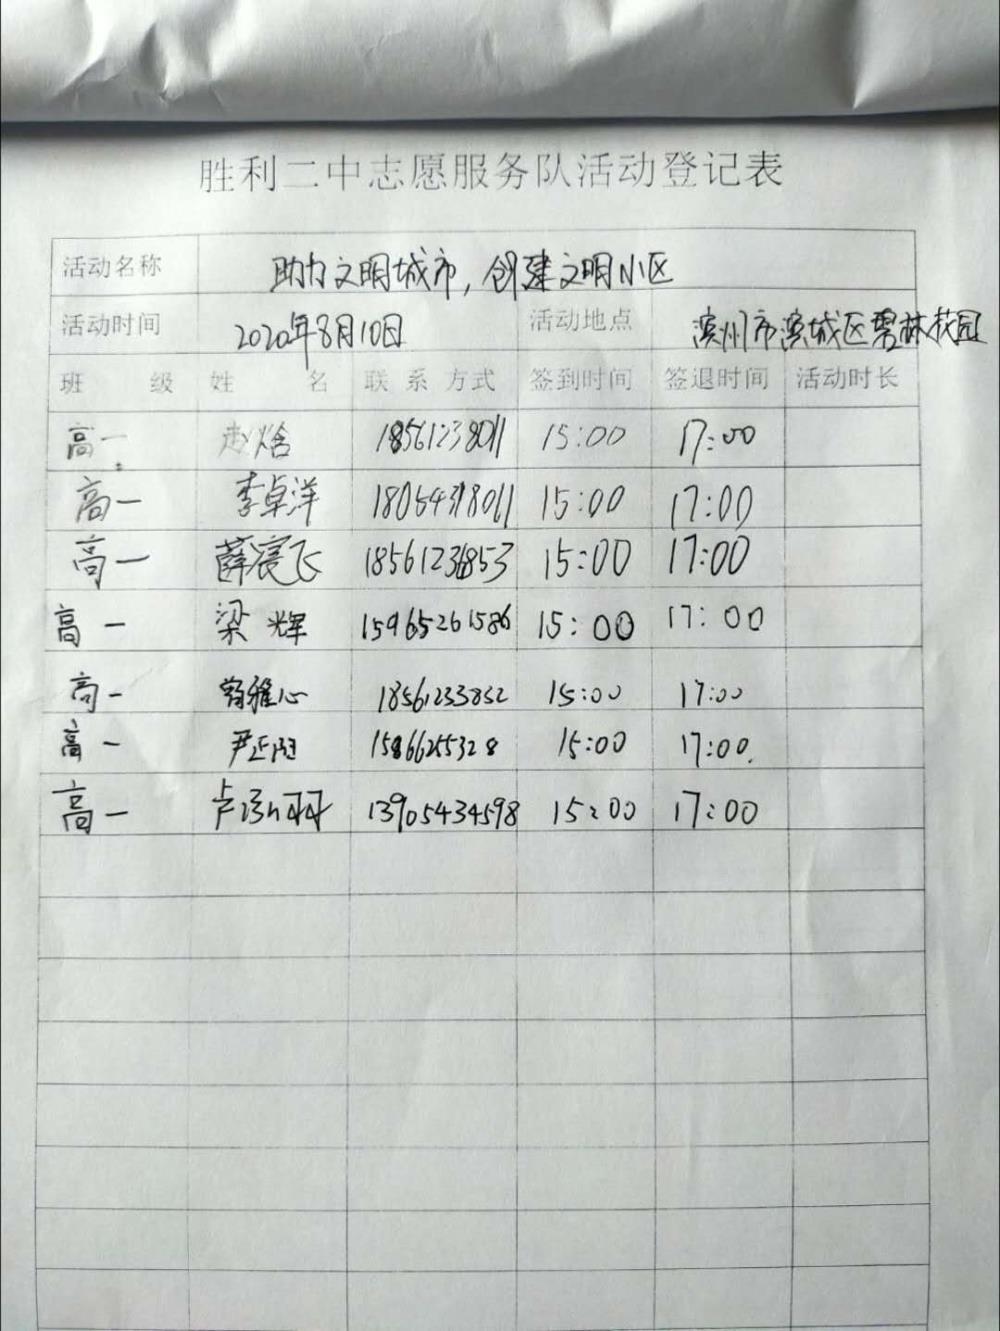 胜利二中志愿服务队活动登记表
活动名称 助力文明城市,创建文明小区
活动时间 2020年8月10日 活动地点 滨州市滨城区碧林花园
班 级 姓 名 联 系 方式 签到时间 签退时间 活动时长
高一 赵焓 18561238011 15:00 17:00
高一 李卓洋 18054318011 15:00 17:00
高一 薛宸飞 18561236853 15:00 17:00
高一 梁辉 15965261586 15:00 17:00
高一 雅心 18561233852 15:00 17:00
高一 尹正阳 15866255328 15:00 17:00.
高一 卢羽 13905434598 15:00 17:00